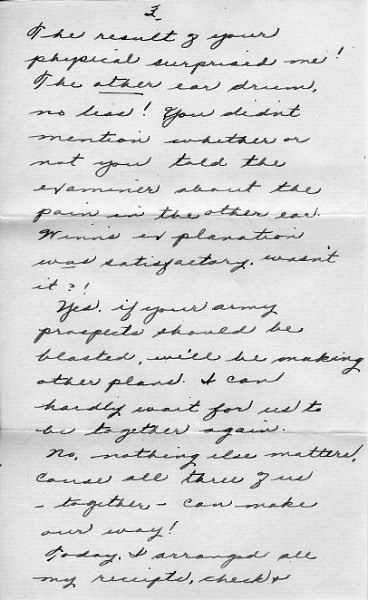 3
The result of your
physical surprised me!
The other ear drum,
no less! You didn't
mention whether or
not you told the
examiner about the
pain in the other ear.
Winn's explanation
was satisfactory, wasn't
it?!
Yes, if your army
prospects should be
blasted, we'll be making
other plans. I can
hardly wait for us to
be together again.
No, nothing else matters,
cause all three of us
- together - can make
our way!
Today, I arranged all
my receipts, check &